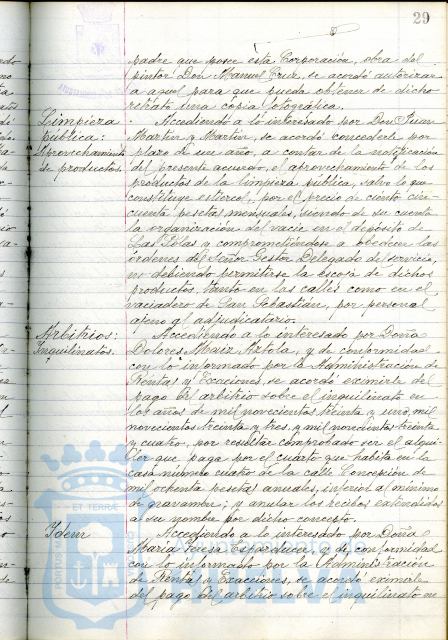 29
padre que posee esta Corporación, obra del
pintor Don Manuel Cruz, se acordó autorizar
a aquel para que pueda obtener de dicho
retrato una copia fotográfica.
Limpieza
pública:
Aprovechamiento
de productos.
Accediendo a lo interesado por Don Juan
Martín y Martín, se acordó concederle por
plazo de un año, a contar de la notificación
del presente acuerdo, el aprovechamiento de los
productos de la limpieza pública, salvo lo que
constituye estiercol, por el precio de ciento cin-
cuenta pesetas mensuales, siendo de su cuenta
la organización del vacie en el depósito de
Las Pólas y comprometiéndose a obedecer las
órdenes del Señor Gestor Delegado del servicio,
no debiendo permitirse la escoja de dichos
productos, tanto en las calles como en el
vaciadero de San Sebastián, por personal
ajeno al adjudicatario.
Arbitrios:
Inquilinatos.
Accediendo a lo interesado por Doña
Dolores Maiz Aztola, y de conformidad
con lo informado por la Administración de
Rentas y Exacciones, se acordó eximirle del
pago del arbitrio sobre el inquilinato en
los años de mil novecientos treinta y uno, mil
novecientos treinta y tres, y mil novecientos treinta
y cuatro, por resultar comprobado ser el alqui-
ler que paga por el cuarto que habita en la
casa número cuatro de la calle Concepción de
mil ochenta pesetas anuales, inferior al mínimo
de gravamen; y anular los recibos extendidos
a su nombre por dicho concepto.
Idem
Accediendo a lo interesado por Doña
María Teresa y de conformidad
con lo informado por la Administración
de Rentas y Exacciones, se acordó eximirle
del pago del arbitrio sobre el inquilinato en